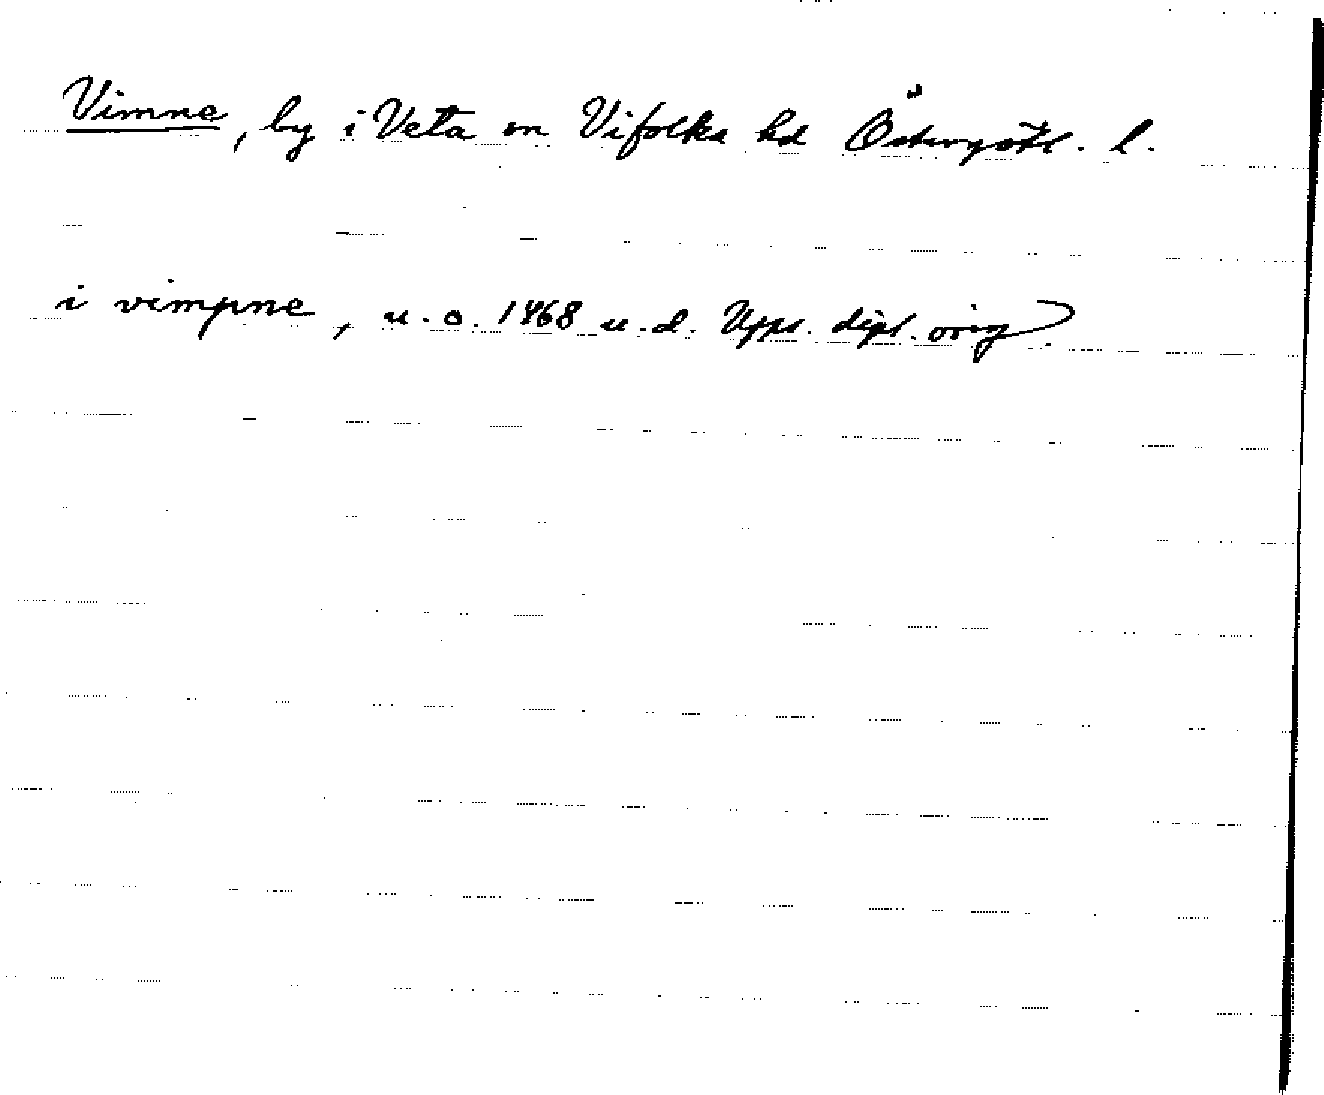 Vimne, by i Veta sn Vifolka hd Östergötl. l.
i vimpne, u.o. 1468 u.d. Upps. dipl. orig.